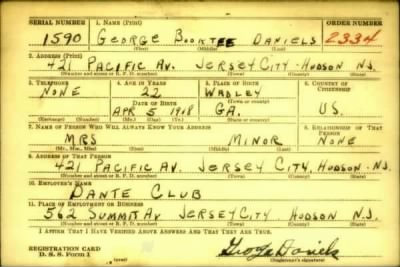 SERIAL NUMBER 1. NAME (Print) ORDER NUMBER
1590 GEORGE BOOKTEE DANIELS 2334
(First) (Middle) (Last)
2. ADDRESS (Print)
421 PACIFIC AV. JERSEY CITY - HUDSON N.J.
(Number and street or R. F. D. number) (Town) (County) (State)
3. TELEPHONE 4. AGE IN YEARS 5. PLACE OF BIRTH 6. COUNTRY OF CITIZENSHIP
NONE 22 WADLEY
DATE OF BIRTH (Town or county)
APR 5 1918 GA. U.S.
(Exchange) (Number) (Mo.) (Day) (Yr.) (State or country)
7. NAME OF PERSON WHO WILL ALWAYS KNOW YOUR ADDRESS 8. RELATIONSHIP OF THAT PERSON
MRS MINOR NONE
(Mr., Mrs., Miss) (First) (Middle) (Last)
9. ADDRESS OF THAT PERSON
421 PACIFIC AV. JERSEY CITY, HUDSON - N.J.
(Number and street or R. F. D. number) (Town) (County) (State)
10. EMPLOYER'S NAME
DANTE CLUB
11. PLACE OF EMPLOYMENT OR BUSINESS
562 SUMMIT AV JERSEY CITY HUDSON N.J.
(Number and street or R. F. D. number) (Town) (County) (State)
I AFFIRM THAT I HAVE VERIFIED ABOVE ANSWERS AND THAT THEY ARE TRUE.
REGISTRATION CARD George Daniels
D. S. S. Form 1 (over) (Registrant's signature)